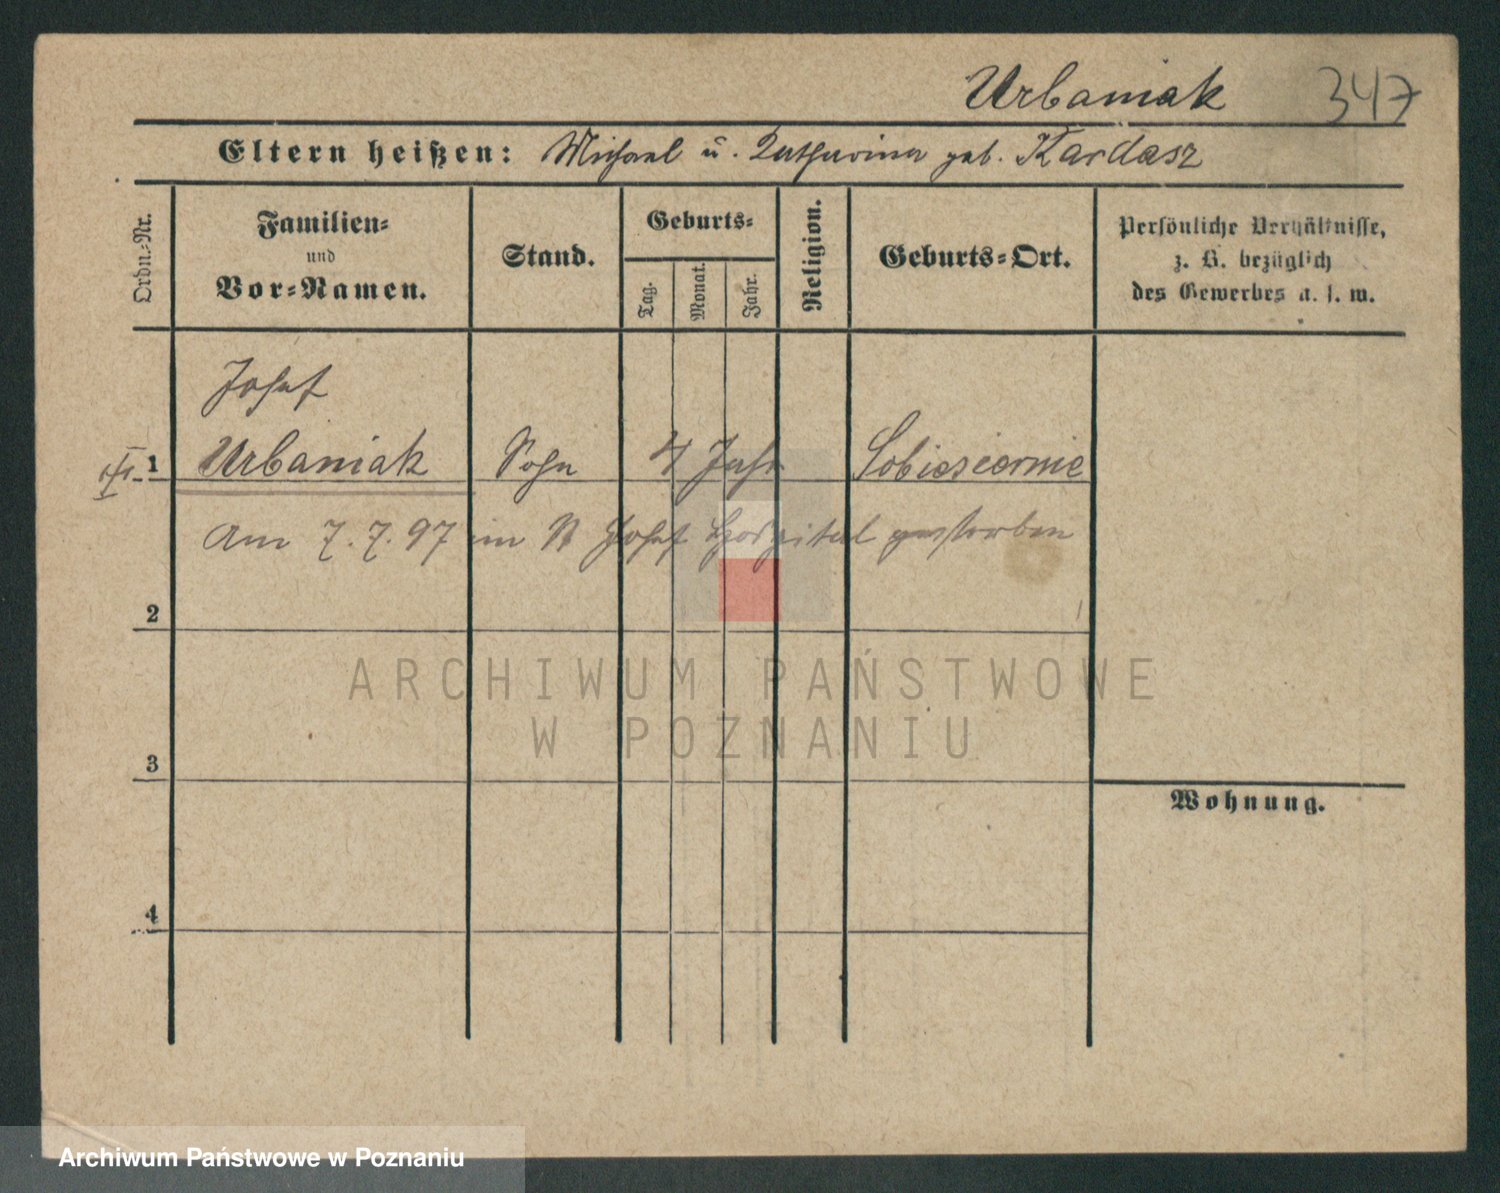 Urbaniak 347
Eltern heißen: Michael u. Catharina geb. Kardasz
Ordn.-Nr.
Familien-
und
Vor-Namen.
Stand.
Geburts-
Tag.
Monat.
Jahr.
Religion.
Geburts-Ort.
Persönliche Verhältnisse,
z. B. bezüglich
des Gewerbes u. s. w.
Josef
1 Urbaniak Sohn 4 Jahr Sobiesiernie
Am 7. 7. 97 im St Josef Hospital gestorben
2
ARCHIWUM PAŃSTWOWE
W POZNANIU
3
Wohnung.
4
Archiwum Państwowe w Poznaniu